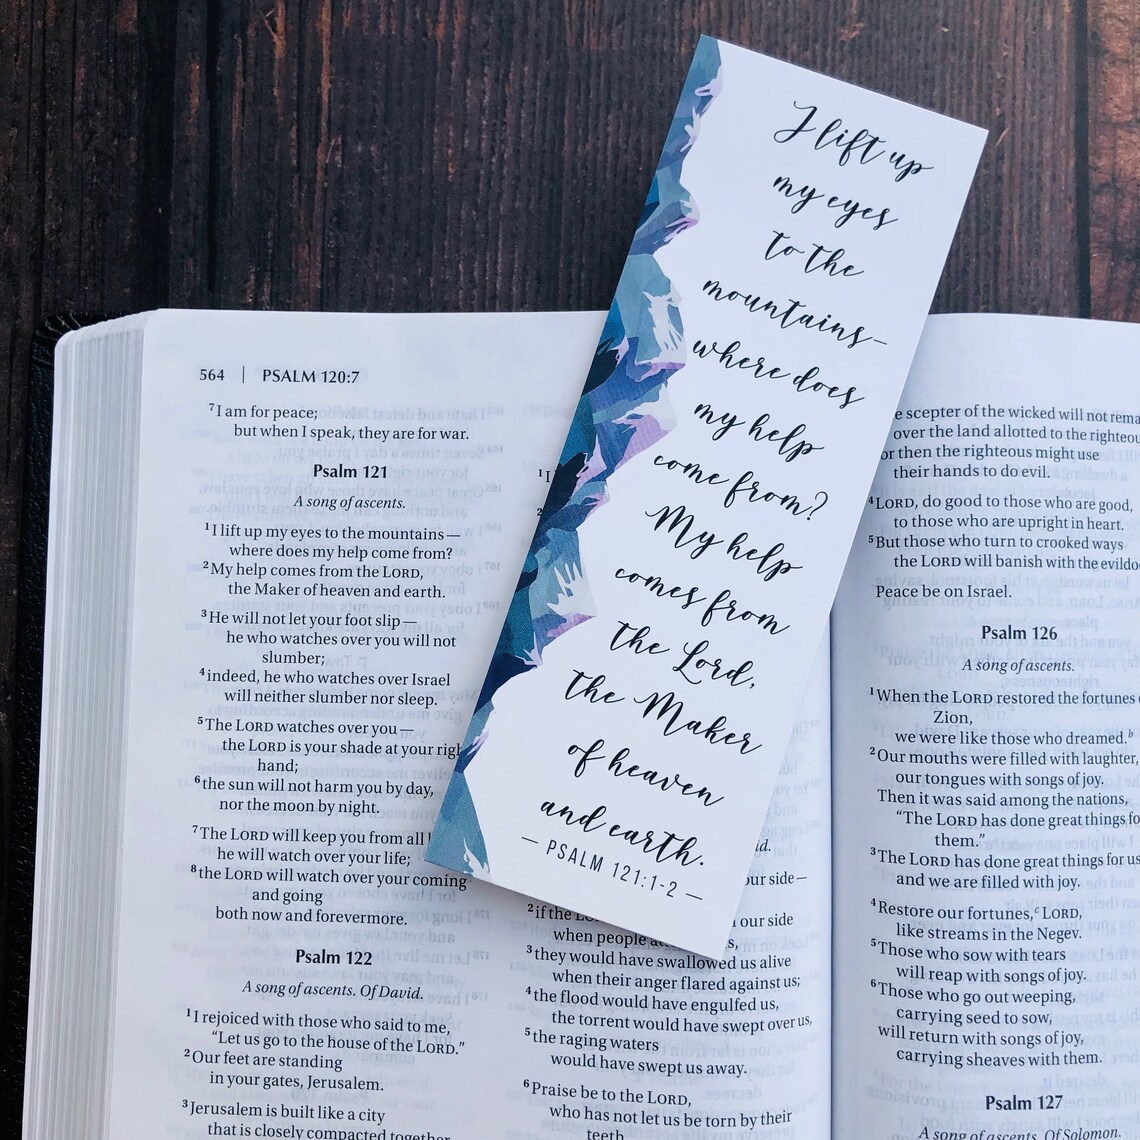 I lift up
my eyes
to the
mountains—
where does
my help
come from?
My help
comes from
the Lord,
the Maker
of heaven
and earth.
— PSALM 121:1-2 —
564 | PSALM 120:7
7 I am for peace;
but when I speak, they are for war.
Psalm 121
A song of ascents.
1 I lift up my eyes to the mountains—
where does my help come from?
2 My help comes from the LORD,
the Maker of heaven and earth.
3 He will not let your foot slip—
he who watches over you will not
slumber;
4 indeed, he who watches over Israel
will neither slumber nor sleep.
5 The LORD watches over you—
the LORD is your shade at your righ
hand;
6 the sun will not harm you by day,
nor the moon by night.
7 The LORD will keep you from all
he will watch over your life;
8 the LORD will watch over your coming
and going
both now and forevermore.
Psalm 122
A song of ascents. Of David.
1 I rejoiced with those who said to me,
“Let us go to the house of the LORD.”
2 Our feet are standing
in your gates, Jerusalem.
3 Jerusalem is built like a city
that is closely compacted together
1 I
2
id.
our side—
2 if the LO our side
when people at s,
3 they would have swallowed us alive
when their anger flared against us;
4 the flood would have engulfed us,
the torrent would have swept over us,
5 the raging waters
would have swept us away.
6 Praise be to the LORD,
who has not let us be torn by their
teeth.
e scepter of the wicked will not rema
over the land allotted to the righteou
or then the righteous might use
their hands to do evil.
4 LORD, do good to those who are good,
to those who are upright in heart.
5 But those who turn to crooked ways
the LORD will banish with the evildo
Peace be on Israel.
Psalm 126
A song of ascents.
1 When the LORD restored the fortunes
Zion,
we were like those who dreamed.b
2 Our mouths were filled with laughter,
our tongues with songs of joy.
Then it was said among the nations,
“The LORD has done great things fo
them.”
3 The LORD has done great things for us
and we are filled with joy.
4 Restore our fortunes,c LORD,
like streams in the Negev.
5 Those who sow with tears
will reap with songs of joy.
6 Those who go out weeping,
carrying seed to sow,
will return with songs of joy,
carrying sheaves with them.
Psalm 127
A song of ascents. Of Solomon.